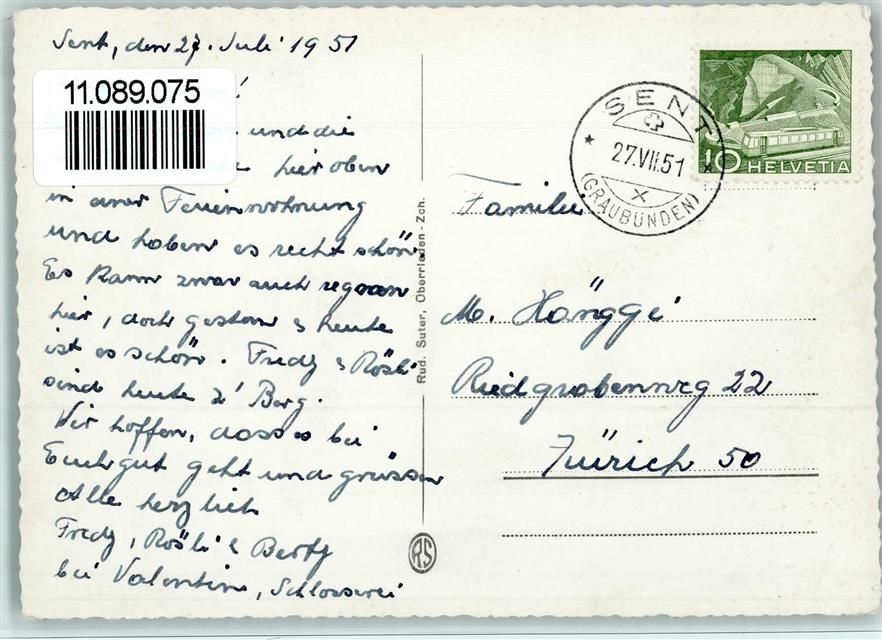 Sent, den 27. Juli 1951
11.089.075
!
und die
hier oben
in einer Ferienwohnung
und haben es recht schön.
Es kann zwar auch regnen
hier, doch gestern & heute
ist es schön. Fredy & Rösli
sind heute z' Berg.
Wir hoffen, dass es bei
Euch gut geht und grüssen
Alle herzlich
Fredy, Rösli & Berty
bei Valentin, Schlosserei
Rud. Suter, Oberrieden - Zch.
RS
SENT
27.VII.51
X
(GRAUBÜNDEN)
10 HELVETIA
Familie
M. Hänggi
Riedgrabenweg 22
Zürich 50